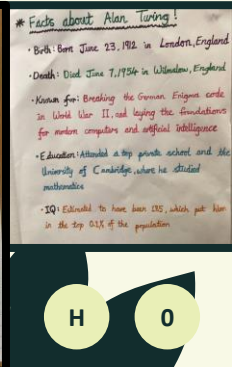 * Facts about Alan Turing!
· Birth: Born June 23, 1912 in London, England
· Death: Died June 7, 1954 in Wilmslow, England
· Known for: Breaking the German Enigma code
in World War II, and laying the foundations
for modern computers and artificial intelligence
· Education: Attended a top private school and the
University of Cambridge, where he studied
mathematics
· IQ: Estimated to have been 185, which put him
in the top 0.1% of the population
H 0